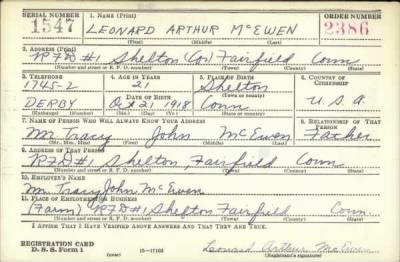 SERIAL NUMBER 1. NAME (Print) ORDER NUMBER
1547 LEONARD ARTHUR McEWEN 2386
(First) (Middle) (Last)
2. ADDRESS (Print)
RFD #1 Shelton (Cor) Fairfield Conn
(Number and street or R. F. D. number) (Town) (County) (State)
3. TELEPHONE 4. AGE IN YEARS 5. PLACE OF BIRTH 6. COUNTRY OF CITIZENSHIP
1745-2 21 Shelton
DATE OF BIRTH (Town or county)
DERBY Oct 21 1918 Conn U.S.A
(Exchange) (Number) (Mo.) (Day) (Yr.) (State or country)
7. NAME OF PERSON WHO WILL ALWAYS KNOW YOUR ADDRESS 8. RELATIONSHIP OF THAT PERSON
Mr. Tracy John McEwen Father
(Mr., Mrs., Miss) (First) (Middle) (Last)
9. ADDRESS OF THAT PERSON
RFD #1 Shelton, Fairfield Conn
(Number and street or R. F. D. number) (Town) (County) (State)
10. EMPLOYER'S NAME
Mr. Tracy John McEwen
11. PLACE OF EMPLOYMENT OR BUSINESS
(Farm) RFD #1 Shelton Fairfield Conn.
(Number and street or R. F. D. number) (Town) (County) (State)
I AFFIRM THAT I HAVE VERIFIED ABOVE ANSWERS AND THAT THEY ARE TRUE.
REGISTRATION CARD
D. S. S. FORM 1 16—17105 Leonard Arthur McEwen
(over) (Registrant's signature)